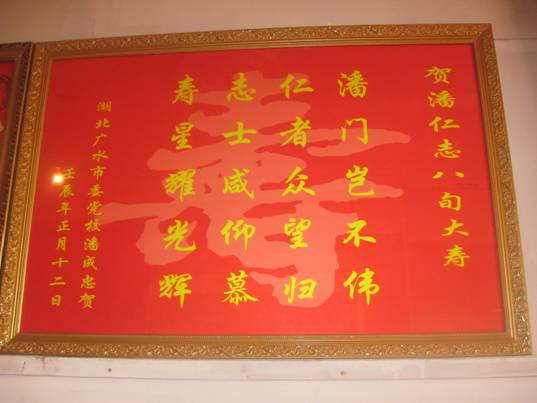 贺潘仁志八旬大寿
潘门岂不伟
仁者众望归
志士咸仰慕
寿星耀光辉
湖北广水市委党校潘成忠贺
壬辰年正月十二日